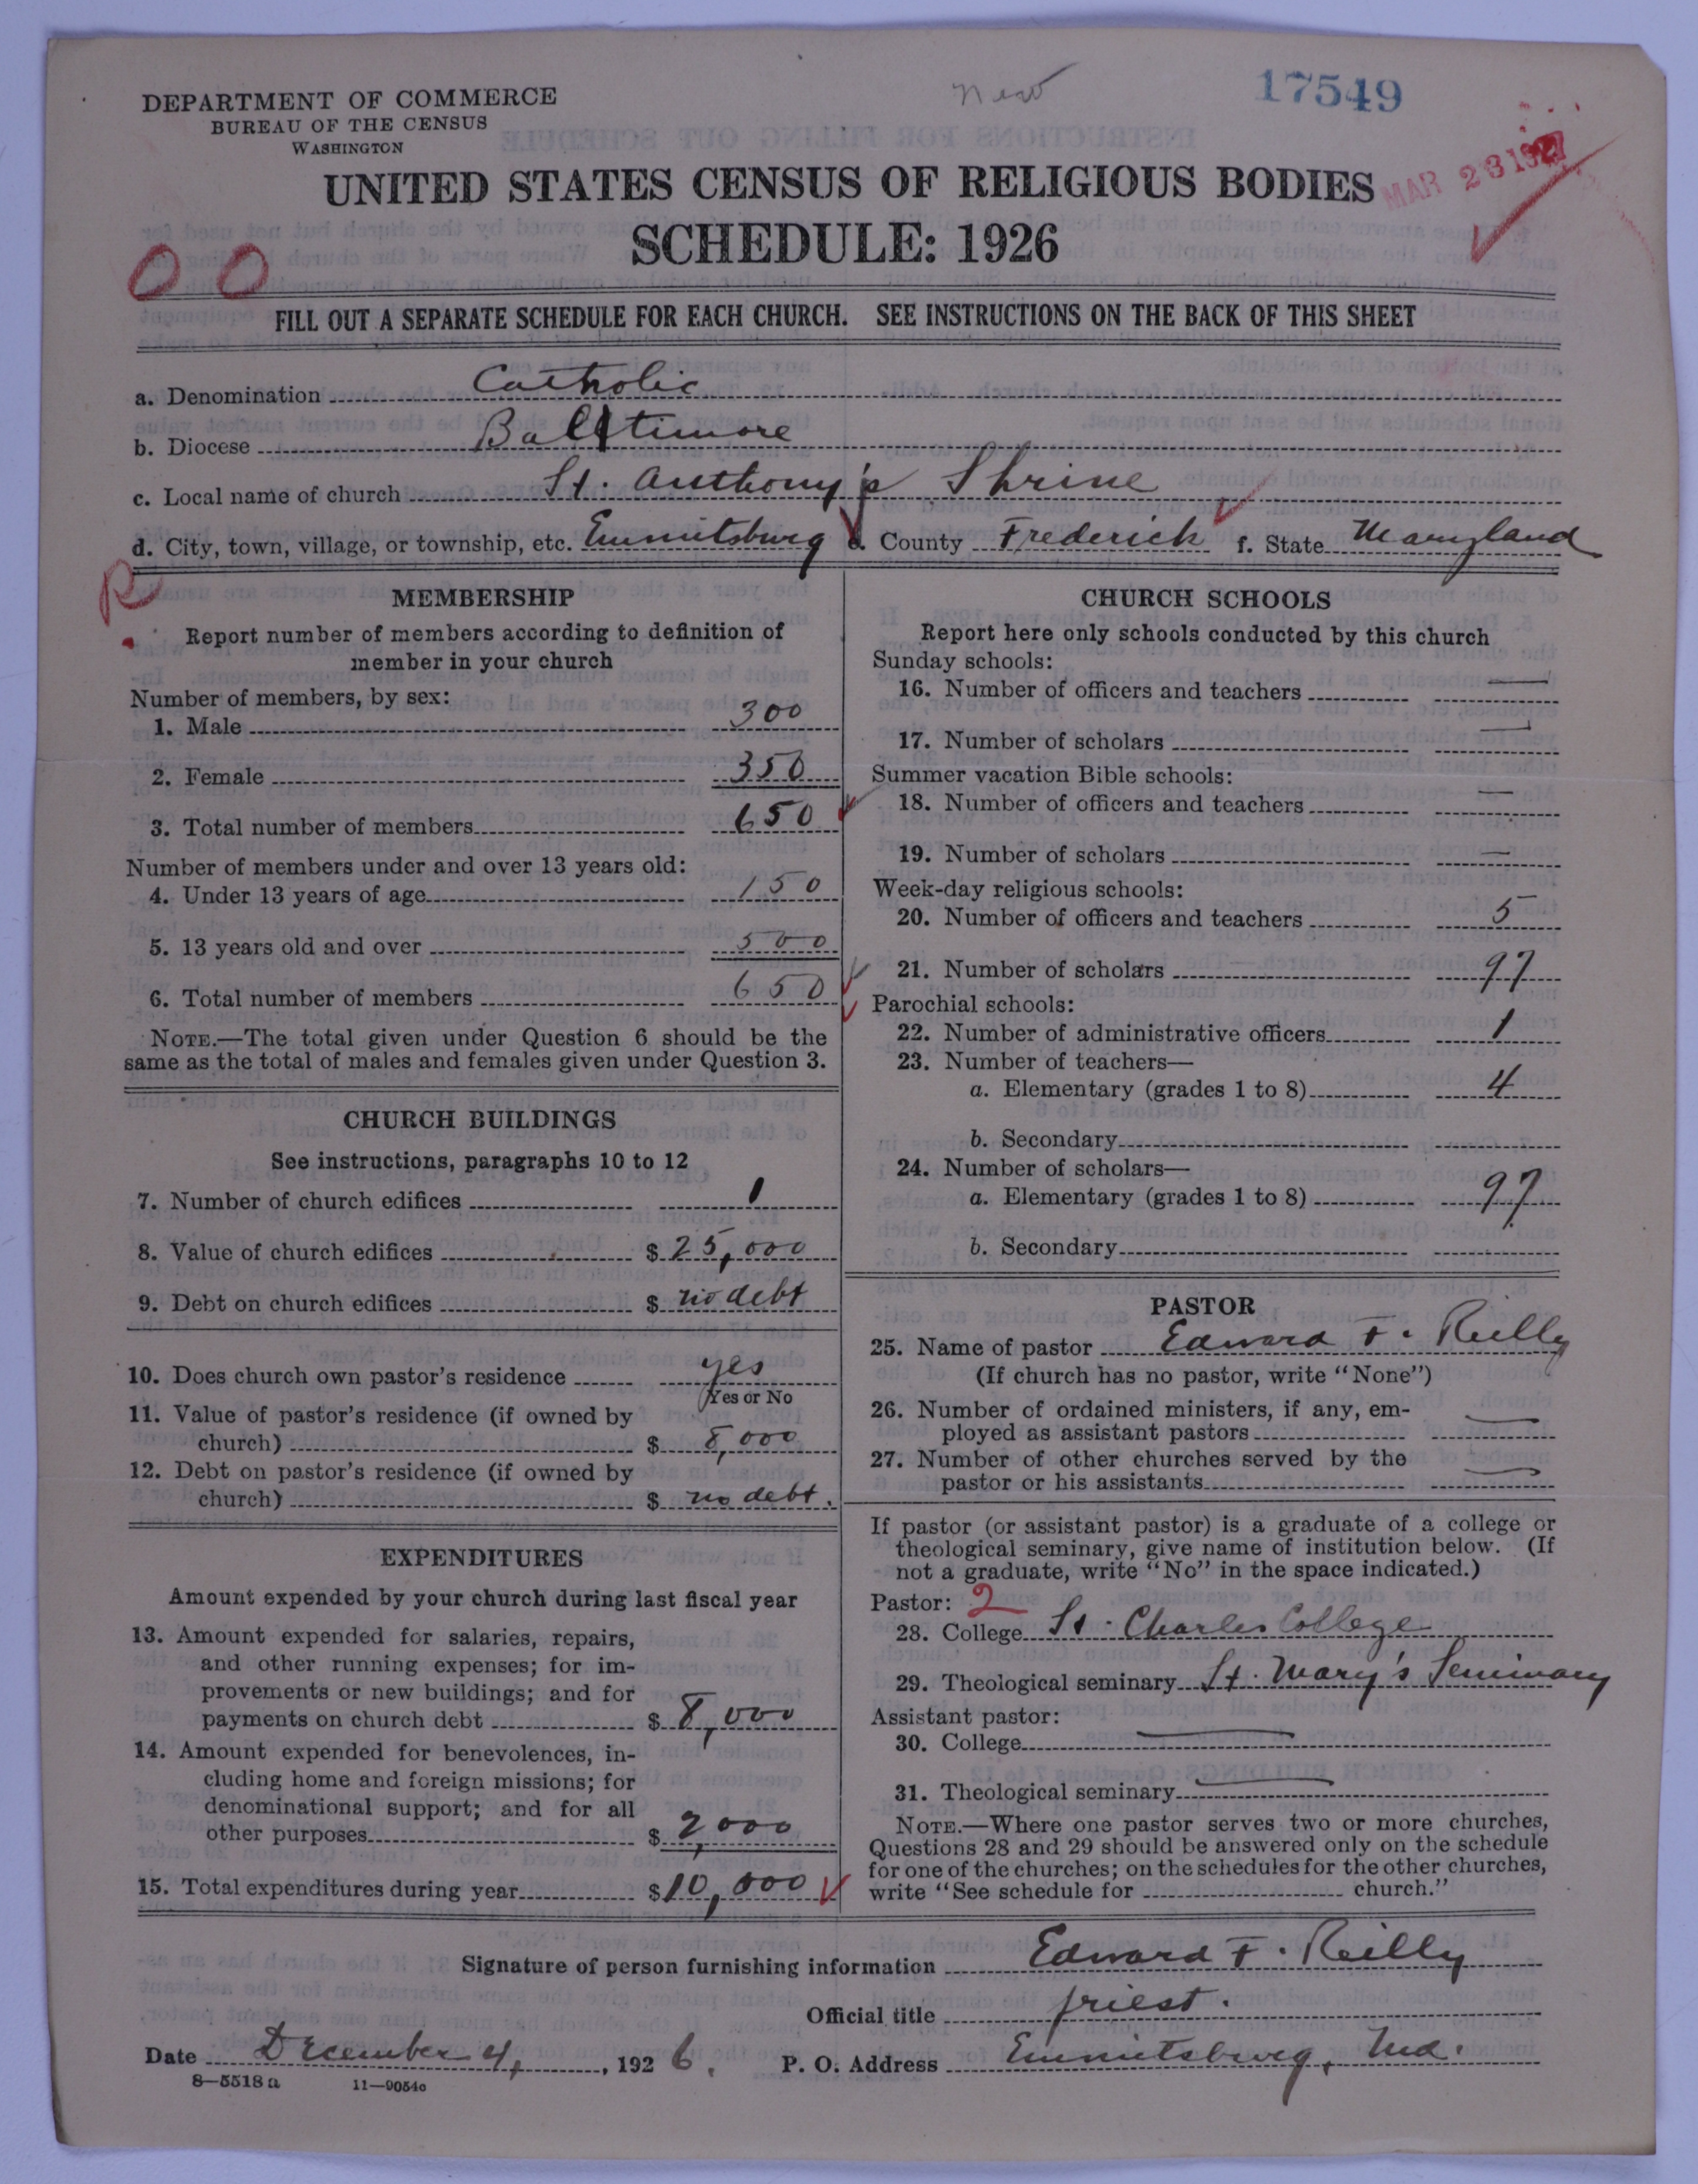 DEPARTMENT OF COMMERCE
BUREAU OF THE CENSUS
WASHINGTON
New
17549
MAR 23 1927
UNITED STATES CENSUS OF RELIGIOUS BODIES
SCHEDULE: 1926
00
FILL OUT A SEPARATE SCHEDULE FOR EACH CHURCH. SEE INSTRUCTIONS ON THE BACK OF THIS SHEET
a. Denomination Catholic
b. Diocese Baltimore
c. Local name of church St. Anthony's Shrine
d. City, town, village, or township, etc. Emmitsburg e. County Frederick f. State Maryland
R
MEMBERSHIP
Report number of members according to definition of
member in your church
Number of members, by sex:
1. Male 300
2. Female 350
3. Total number of members 650
Number of members under and over 13 years old:
4. Under 13 years of age 150
5. 13 years old and over 500
6. Total number of members 650
NOTE.—The total given under Question 6 should be the
same as the total of males and females given under Question 3.
CHURCH BUILDINGS
See instructions, paragraphs 10 to 12
7. Number of church edifices 1
8. Value of church edifices $ 25,000
9. Debt on church edifices $ no debt
10. Does church own pastor's residence yes
Yes or No
11. Value of pastor's residence (if owned by
church) $ 8,000
12. Debt on pastor's residence (if owned by
church) $ no debt.
EXPENDITURES
Amount expended by your church during last fiscal year
13. Amount expended for salaries, repairs,
and other running expenses; for im-
provements or new buildings; and for
payments on church debt $ 8,000
14. Amount expended for benevolences, in-
cluding home and foreign missions; for
denominational support; and for all
other purposes $ 2,000
15. Total expenditures during year $ 10,000
CHURCH SCHOOLS
Report here only schools conducted by this church
Sunday schools:
16. Number of officers and teachers —
17. Number of scholars —
Summer vacation Bible schools:
18. Number of officers and teachers —
19. Number of scholars —
Week-day religious schools:
20. Number of officers and teachers 5
21. Number of scholars 97
Parochial schools:
22. Number of administrative officers 1
23. Number of teachers—
a. Elementary (grades 1 to 8) 4
b. Secondary
24. Number of scholars—
a. Elementary (grades 1 to 8) 97
b. Secondary
PASTOR
25. Name of pastor Edward F. Reilly
(If church has no pastor, write "None")
26. Number of ordained ministers, if any, em-
ployed as assistant pastors —
27. Number of other churches served by the
pastor or his assistants —
If pastor (or assistant pastor) is a graduate of a college or
theological seminary, give name of institution below. (If
not a graduate, write "No" in the space indicated.)
Pastor: 2
28. College St. Charles College
29. Theological seminary St. Mary's Seminary
Assistant pastor:
30. College —
31. Theological seminary —
NOTE.—Where one pastor serves two or more churches,
Questions 28 and 29 should be answered only on the schedule
for one of the churches; on the schedules for the other churches,
write "See schedule for church."
Signature of person furnishing information Edward F. Reilly
Official title priest.
Date December 4, 1926. P. O. Address Emmitsburg, Md.
8—5518 a 11—9054c